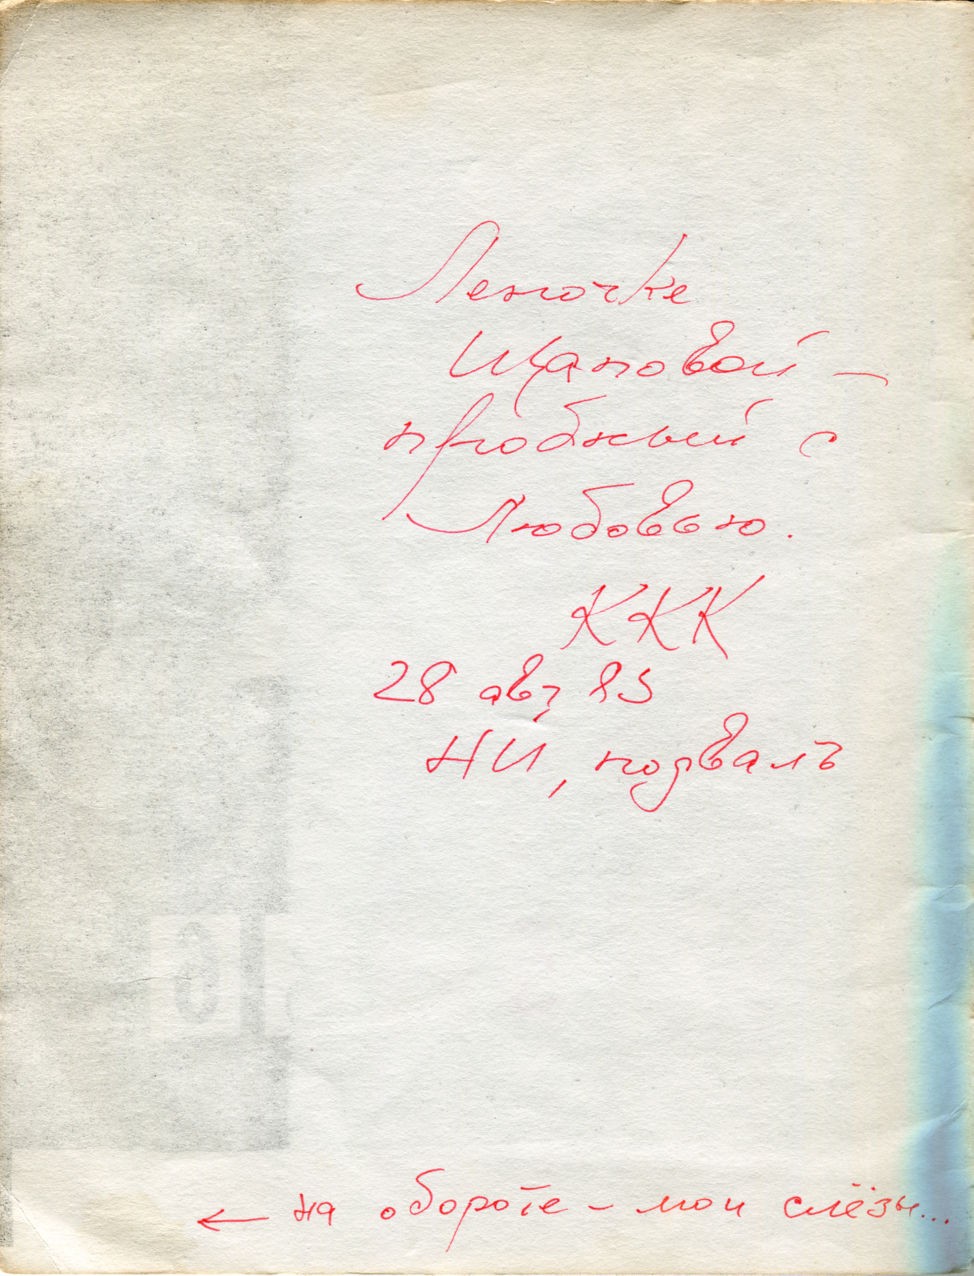 Леночке
Щаповой –
пробный с
Любовью.
ККК
28 авг 83
НЙ, подвалъ
← на обороте – мои слёзы...
6